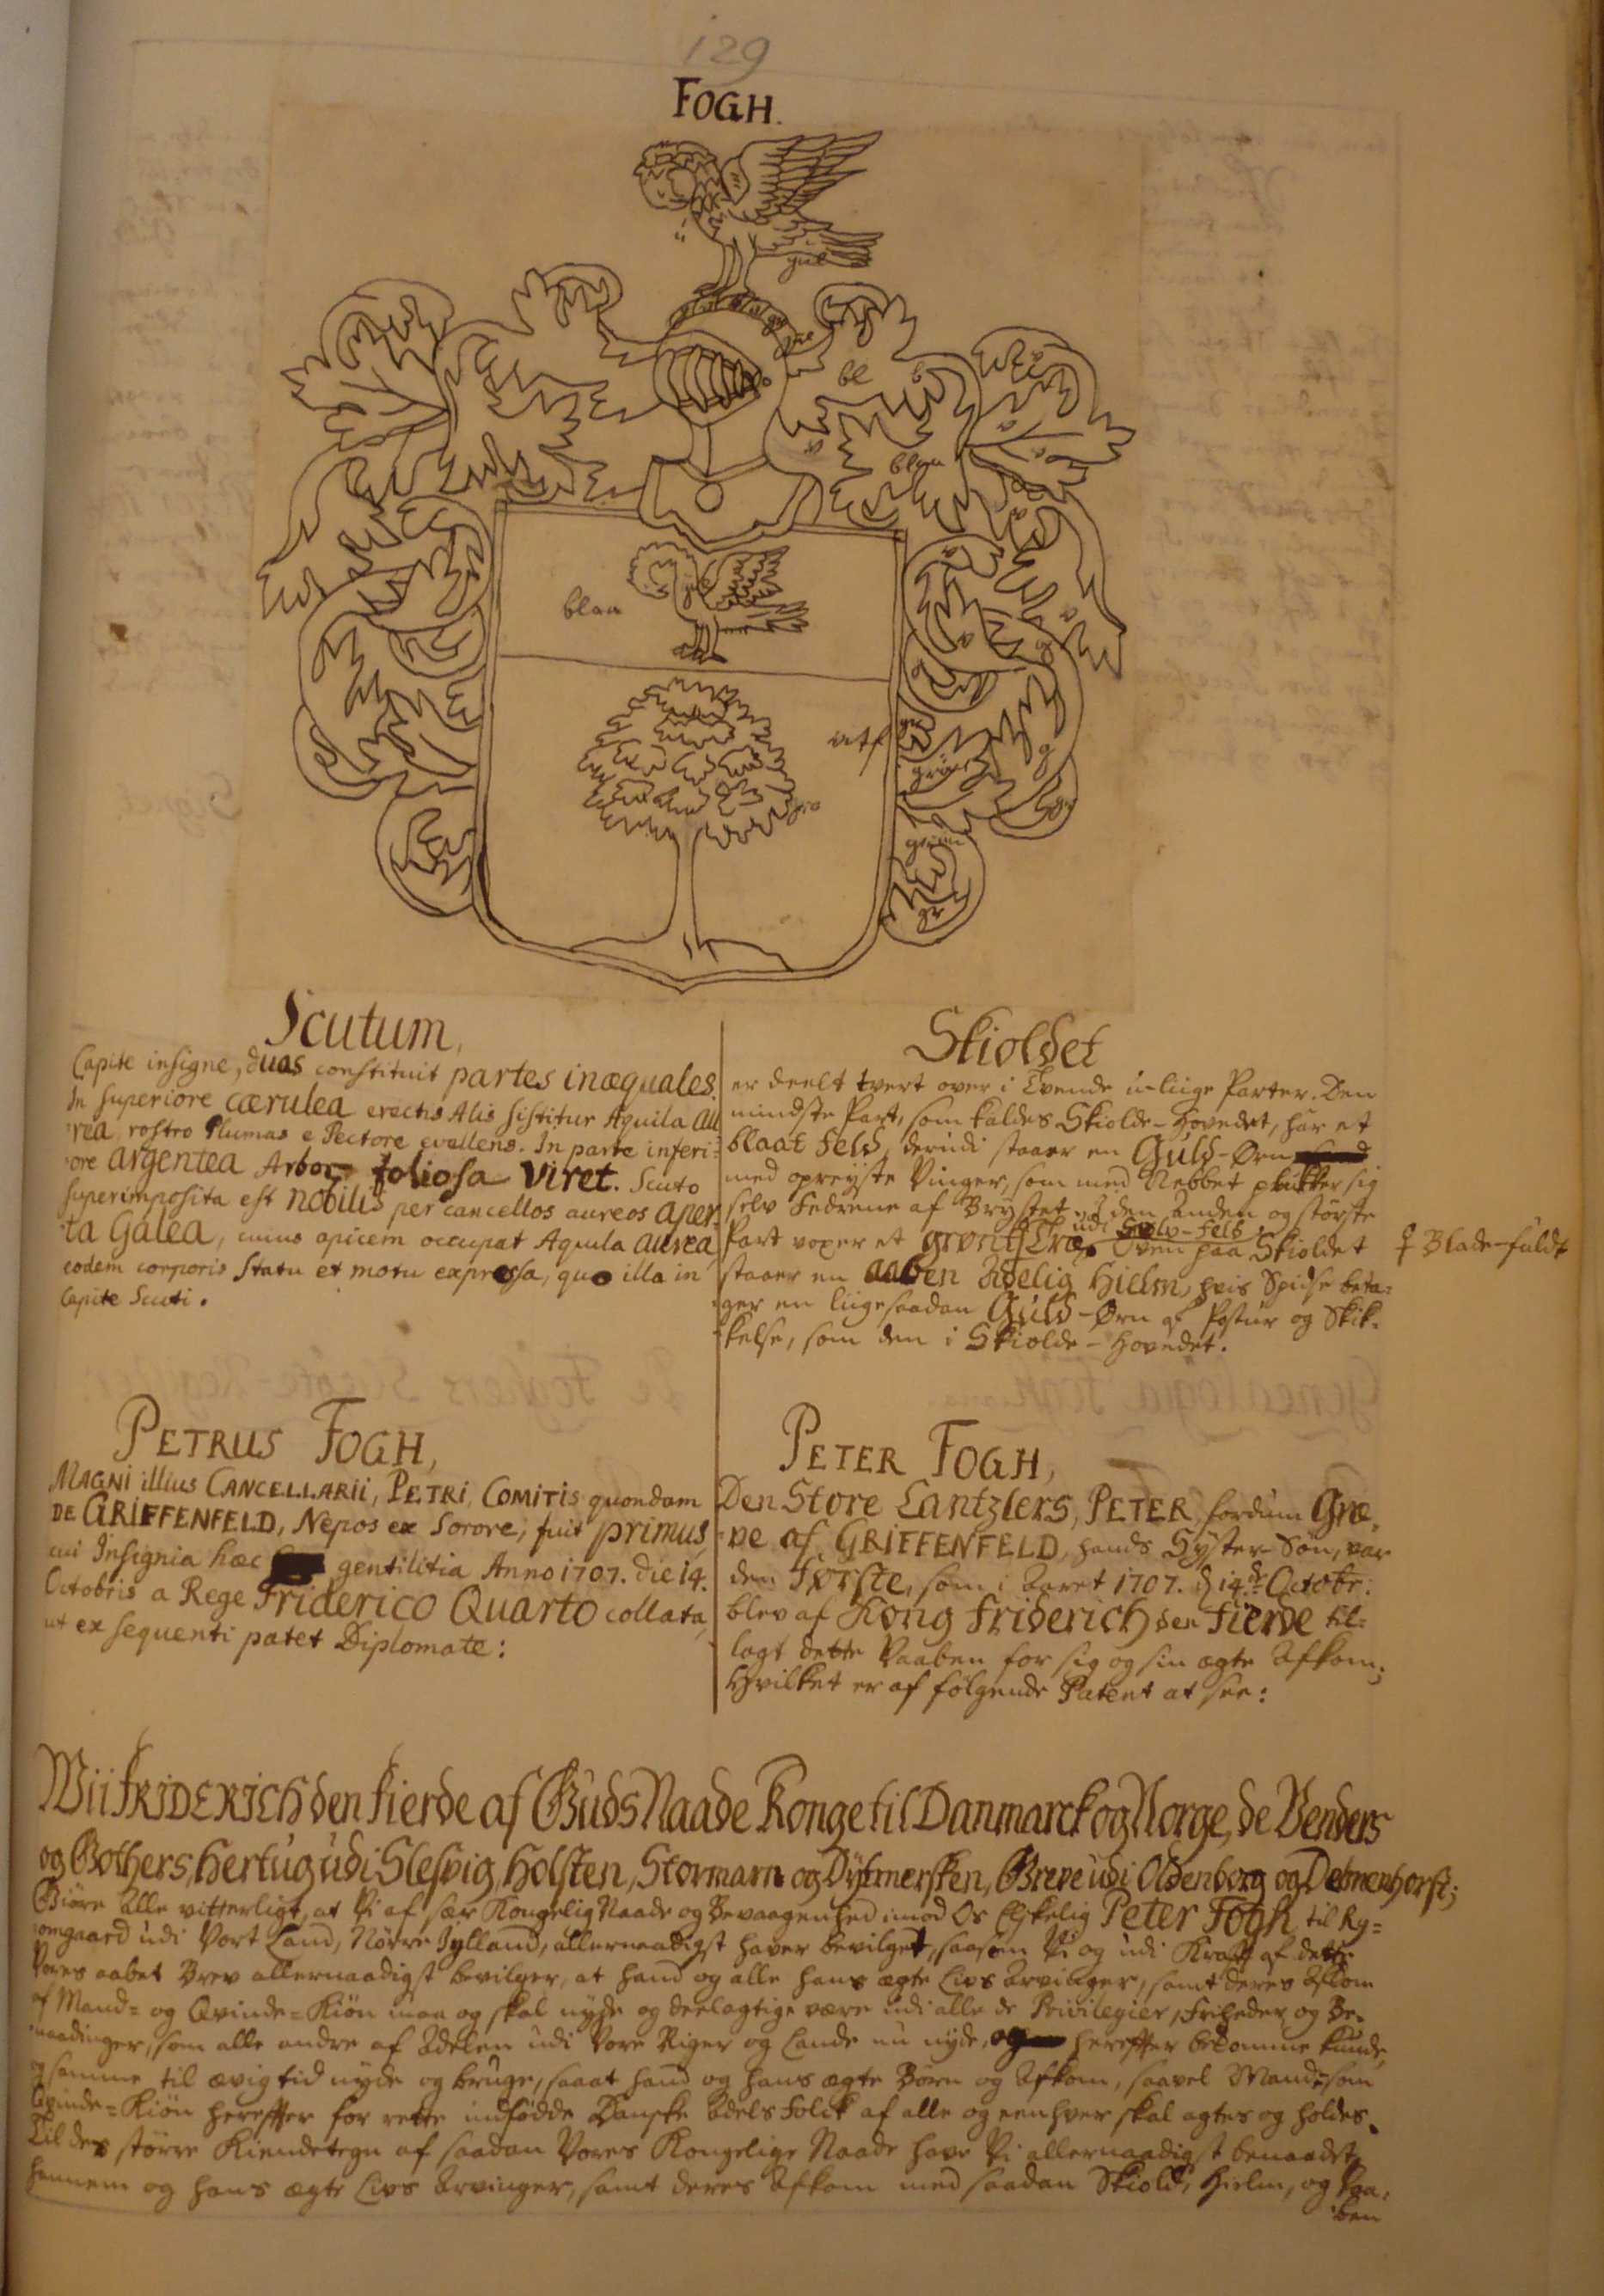 129
FOGH.
gul
gul
bl
b
blaa
blaa
gul
grøn
grøn
gr
Scutum,
Capite insigne, duas constituit partes inæquales.
In superiore cærulea erectis Alis sistitur Aquila au
rea, rostro Plumas e Pectore evellens. In parte inferi-
ore argentea Arbor foliosa Viret. Scuto
superimposita est nobilis per cancellos aureos aper-
ta Galea, cuius apicem occupat Aquila aurea
eodem corporis statu et motu expressa, quo illa in
Capite Scuti.
Skioldet
er deelt tvert over i Tvende u-liige Parter. Den
mindste Part, som kaldes Skiolde-Hovedet, har et
blaat Feld, derudi staaer en Guld-Ørn
med opreyste Vinger, som med Nebbet plukker sig
selv Fedrene af Brystet. I den Anden og største
udi Sølv-Feld
Part voxer et grønt Træ. Oven paa Skioldet
Blade-fuldt
staaer en aaben Adelig Hielm, hvis Spidse beta-
ger en liigesaadan Guld-Ørn af Postur og Skik-
kelse, som den i Skiolde-Hovedet.
PETRUS FOGH,
MAGNI illius CANCELLARII, PETRI, COMITIS quondam
DE GRIFFENFELD, Nepos ex Sorore, fuit primus,
cui Insignia hæc gentilitia Anno 1707. die 14.
Octobris a Rege Friderico Quarto collata,
ut ex sequenti patet Diplomate:
PETER FOGH,
Den Store Cantzlers, PETER, fordum Gre-
ve af GRIFFENFELD, hands Syster-Søn, var
den Første, som i Aaret 1707. d. 14de Octobr:
blev af Kong Friderich den Fierde til-
lagt dette Vaaben for sig og sin ægte Afkom;
Hvilket er af følgende Patent at see:
Wii FRIDERICH den Fierde af Guds Naade Konge til Danmarck og Norge, de Venders
og Gothers, Hertug udi Slesvig, Holsten, Stormarn og Dytmersken, Greve udi Oldenborg og Delmenhorst;
Giøre Alle vitterligt, at Vi af sær Kongelig Naade og Bevaagenhed imod Os Elskelig Peter Fogh til Ry-
omgaard udi Vort Land, Nørre Jylland, allernaadigst haver bevilget, saasom Vi og udi Krafft af dette
Vores aabet Brev allernaadigst bevilger, at hand og alle hans ægte Livs Arvinger, samt deres Afkom
af Mand- og Qvinde-Kiøn maa og skal nyde og deelagtige være udi alle de Privilegier, Friheder og Be-
naadinger, som alle andre af Adelen udi Vore Riger og Lande nu nyde, og herefter bekomme kunde,
og samme til ævig tid nyde og bruge, saa at hand og hans ægte Børn og Afkom, saavel Mand- som
Qvinde-Kiøn herefter for rette indfødde Danske Adels Folck af alle og eenhver skal agtes og holdes.
Til des større Kiendetegn af saadan Vores Kongelige Naade have Vi allernaadigst benaadet
hannem og hans ægte Livs Arvinger, samt deres Afkom med saadan Skiold, Hielm, og Vaa-
ben